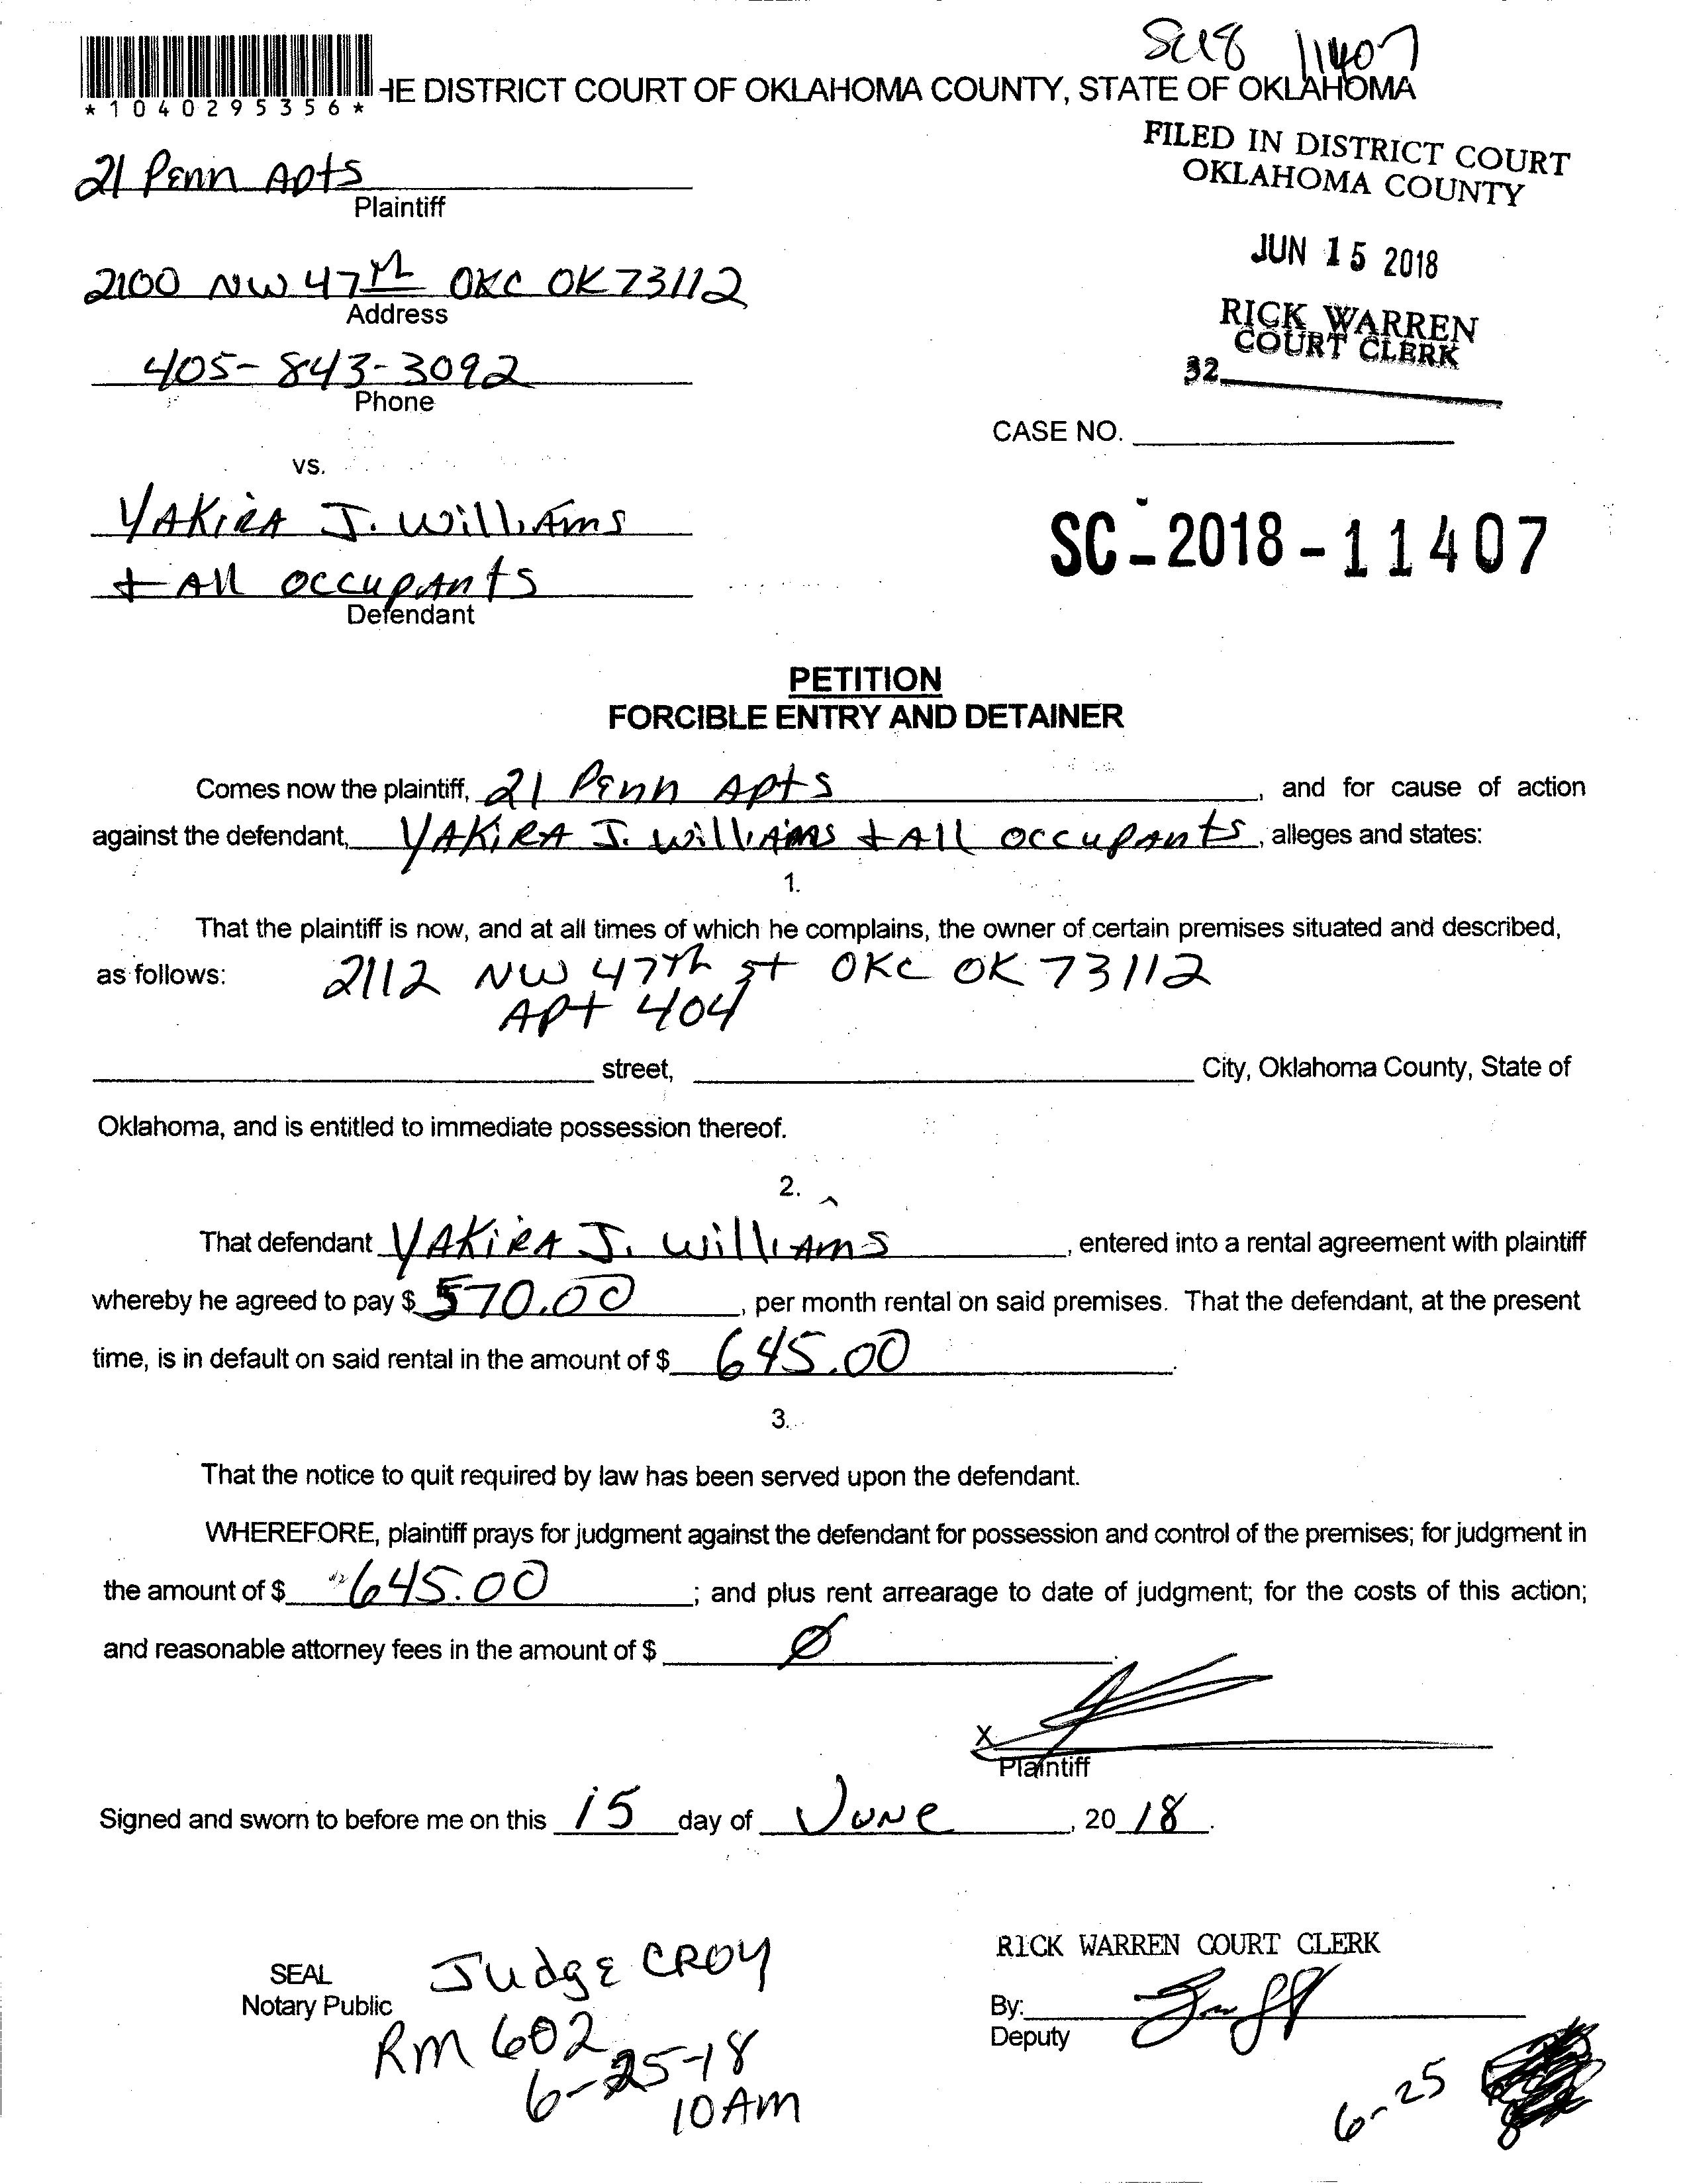 SC18 11407
HE DISTRICT COURT OF OKLAHOMA COUNTY, STATE OF OKLAHOMA
*1040295356*
FILED IN DISTRICT COURT
OKLAHOMA COUNTY
21 Penn Apts
Plaintiff
JUN 15 2018
2100 NW 47th OKC OK 73112
Address
RICK WARREN
COURT CLERK
32
405-843-3092
Phone
CASE NO.
vs.
YAKIRA J. WilliAms
+ All occupants
Defendant
SC-2018-11407
PETITION
FORCIBLE ENTRY AND DETAINER
Comes now the plaintiff, 21 Penn Apts, and for cause of action
against the defendant, YAKiRA J. WilliAms + All occupants, alleges and states:
1.
That the plaintiff is now, and at all times of which he complains, the owner of certain premises situated and described,
as follows: 2112 NW 47th st OKC OK 73112
Apt 404
street, City, Oklahoma County, State of
Oklahoma, and is entitled to immediate possession thereof.
2.
That defendant YAKiRA J. WilliAms, entered into a rental agreement with plaintiff
whereby he agreed to pay $ 570.00, per month rental on said premises. That the defendant, at the present
time, is in default on said rental in the amount of $ 645.00.
3.
That the notice to quit required by law has been served upon the defendant.
WHEREFORE, plaintiff prays for judgment against the defendant for possession and control of the premises; for judgment in
the amount of $ 645.00; and plus rent arrearage to date of judgment; for the costs of this action;
and reasonable attorney fees in the amount of $ Ø.
X
Plaintiff
Signed and sworn to before me on this 15 day of June, 20 18.
RICK WARREN COURT CLERK
SEAL
Notary Public
Judge CROY
By:
Deputy
RM 602
6-25-18
10 AM
6-25